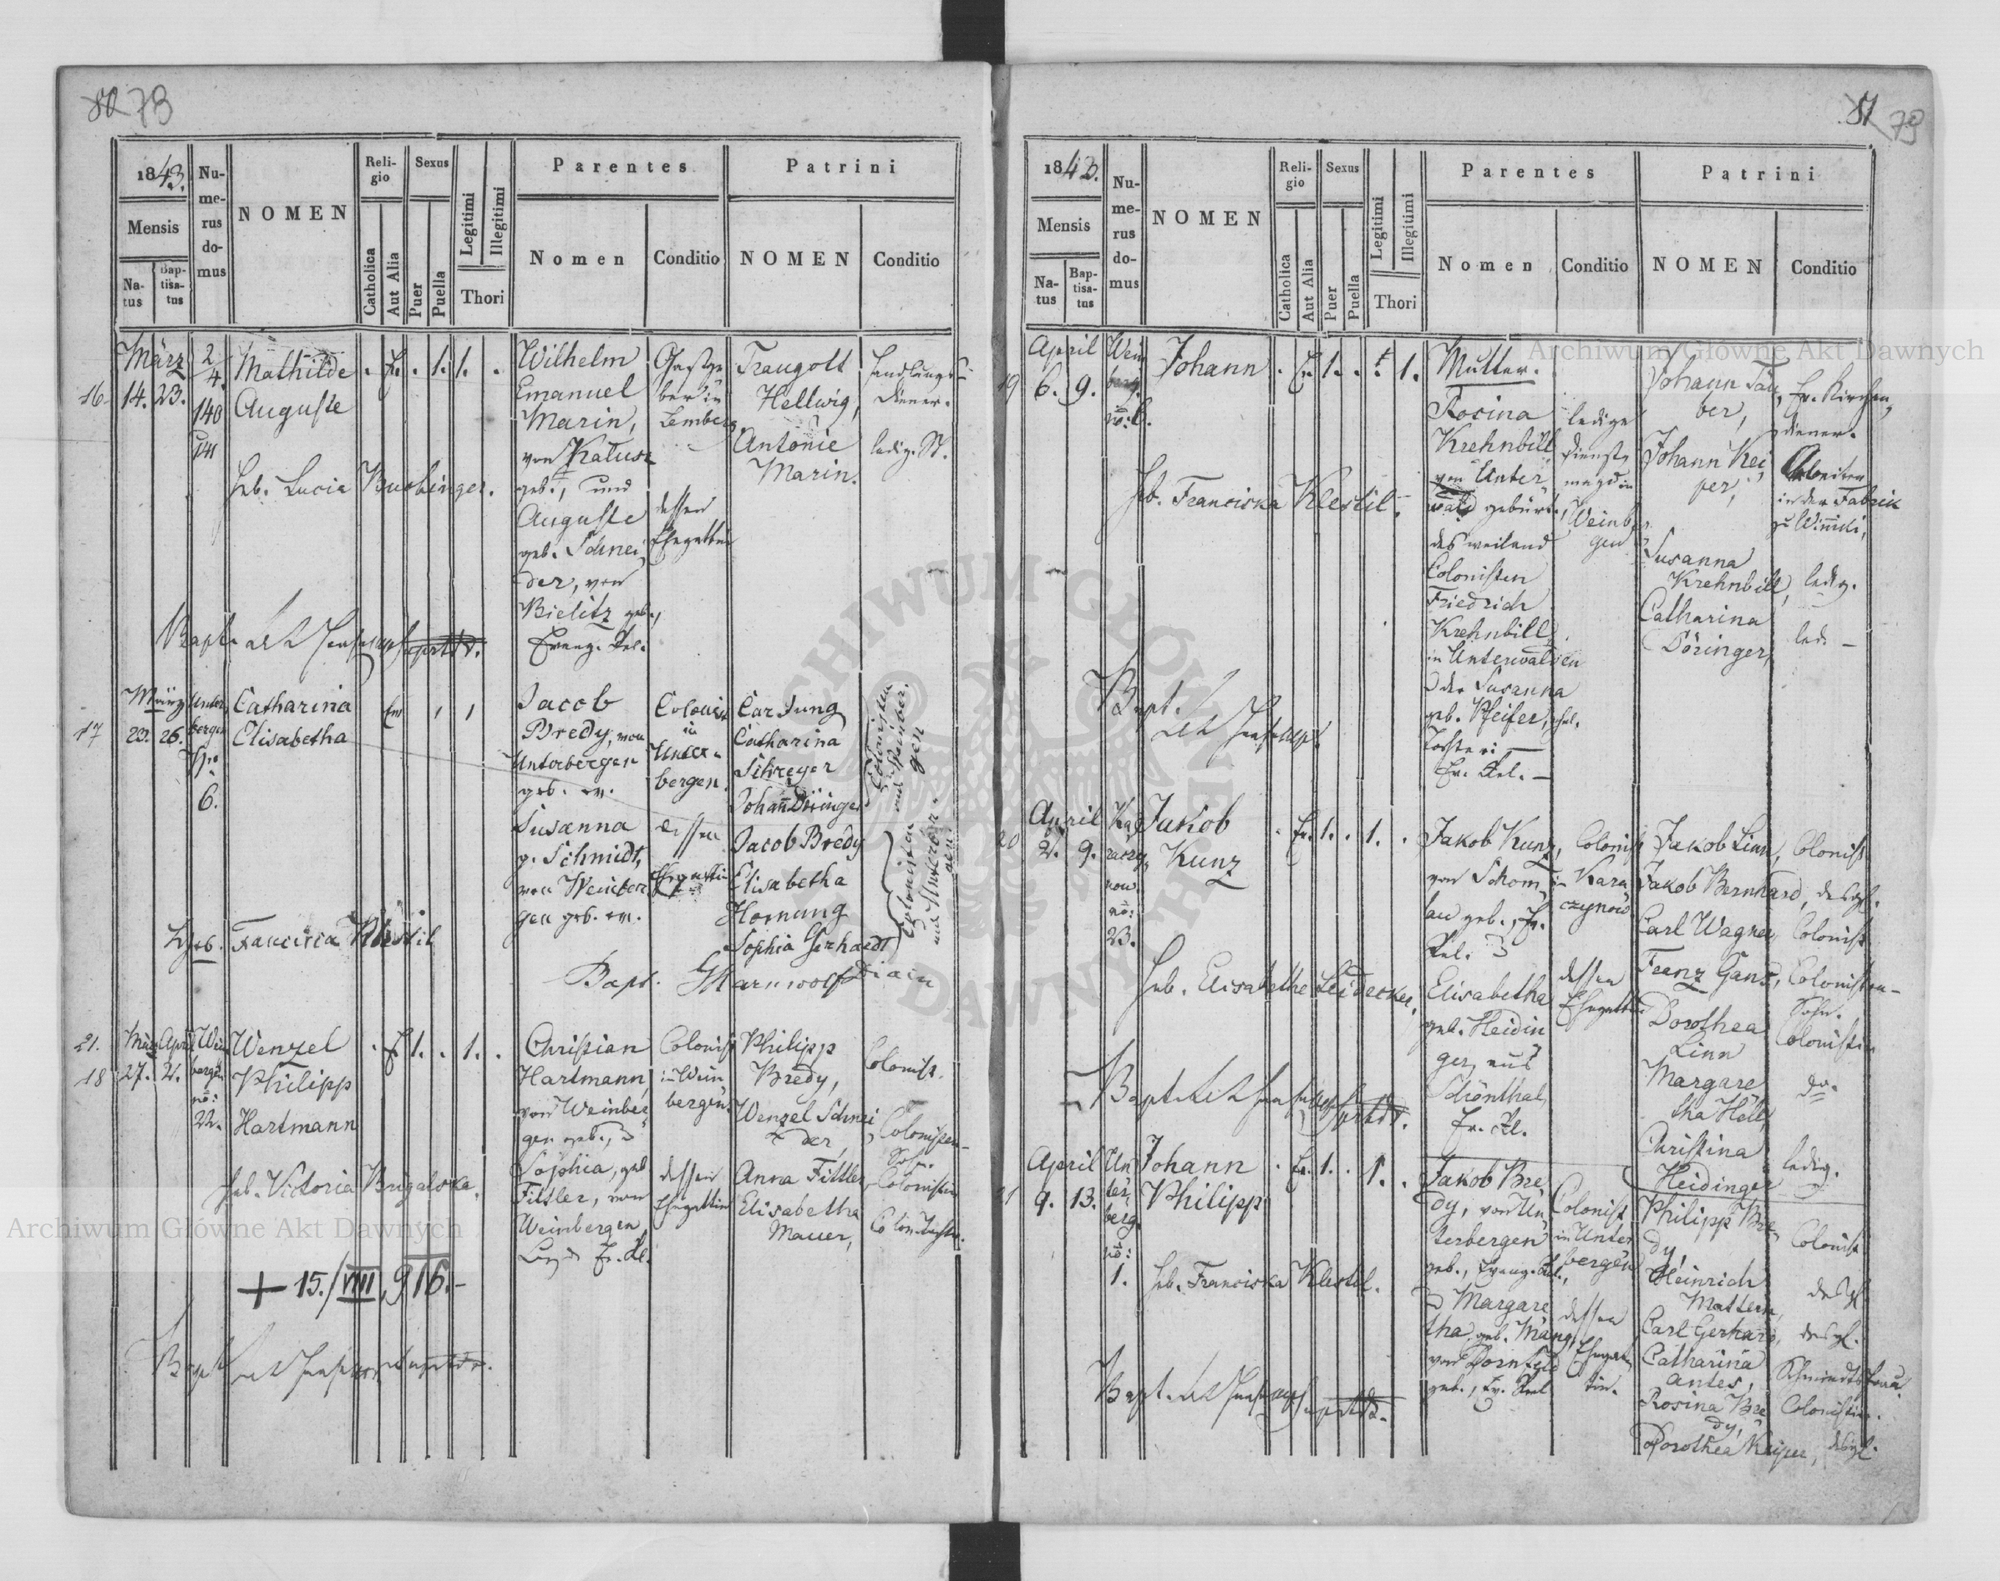 80 78
1843.
Mensis
Natus
Baptisatus
Numerus domus
NOMEN
Religio
Catholica
Aut Alia
Sexus
Puer
Puella
Legitimi
Illegitimi
Thori
Parentes
Nomen
Conditio
Patrini
NOMEN
Conditio
16.
März
14. 23.
2/4.
140
141
Mathilde
Auguste
. Ev. . 1. 1. .
Wilhelm
Emanuel
Marin,
von Kalusz
geb., und
Auguste
geb. Schnei
der, von
Bielitz geb.,
Evang. Rel.
Gastge
ber in
Lemberg,
dessen
Ehegattin
Traugott
Hellwig,
Antonie
Marin.
Handlungs-
diener.
ledig. St.
Heb. Lucia Buchinger.
Bapt.
17
März
23. 26.
Unter
bergen
Nro
6.
Catharina
Elisabetha
Ev
Jacob
Bredy, von
Unterbergen
geb. ev.
Susanna
g. Schmidt,
von Weinber
gen geb. ev.
Colonist
in
Unter-
bergen.
dessen
Ehegattin
Car Jung
Catharina
Schreyer
Johann Döringer
Jacob Bredy
Elisabetha
Hornung
Sophia Gerhardt
Colonisten
aus Weinber,
gen
Colonisten
aus Unterber-
gen.
Hgeb. Francisca Klestil
Bapt.
21.
18
März April
27. 2.
Wein
bergen
no:
22.
Wenzel
Philipp
Hartmann
. Ev. 1. . 1. .
Christian
Hartmann
von Weinber
gen geb.,
Sophia, geb
Filtler, von
Weinbergen,
Ev. Rl.
Colonist
in Wein
bergen.
dessen
Ehegattin
Philipp
Bredy,
Wenzel Schnei
der,
Anna Filtler,
Elisabetha
Mauer,
Colonist.
Colonisten-
Sohn.
Colonistin
Heb. Victoria Brigalska.
+ 15./VIII, 916.-
Bapt
81 79
1843.
Mensis
Natus
Baptisatus
Numerus domus
NOMEN
Religio
Catholica
Aut Alia
Sexus
Puer
Puella
Legitimi
Illegitimi
Thori
Parentes
Nomen
Conditio
Patrini
NOMEN
Conditio
19
April
6. 9.
Wein
berg.
no: 6.
Johann
. Ev. 1. . . 1.
Mutter.
Rosina
Krehnbill
von Unter
wald gebürt.,
des weiland
Colonisten
Friedrich
Krehnbill,
in Unterwalden
u der Susanna
geb. Pfeifer, ehel.
Tochter. —
Ev. Rel. —
ledige
Dienst
magd in
Weinber
gen
Johann Täu
ber,
Johann Kei
per,
Susanna
Krehnbill,
Catharina
Döringer,
Ev. Kirchen,
diener.
Arbeiter
in der Fabrik
zu Winniki,
ledig.
led. —
Heb. Franciska Klestil.
Bapt.
20
April
2. 9.
Ka
raczy,
now
no:
23.
Jakob
Kunz
. Ev. 1. . 1. .
Jakob Kunz,
von Schom
lau geb., Ev.
Rel. u
Elisabetha
geb. Heidin
ger, aus
Schönthal,
Ev. Rl.
Colonist
in Kara
czynow
dessen
Ehegattin
Jakob Linn,
Jakob Bernhard,
Carl Wagner,
Franz Ganz,
Dorothea
Linn
Margare
tha Höll,
Christina
Heidinger
Colonist
desgl.
Colonist
Colonisten-
Sohn.
Colonistin
do.
ledig.
Heb. Elisabethe Leidecker,
Bapt.
21
April
9. 13.
Un
ter,
berg.
no:
1.
Johann
Philipp
. Ev. 1. . 1. .
Jakob Bre
dy, von Un
terbergen
geb., Evang. Rel.,
u Margare
tha, geb. Mang,
von Dornfeld
geb., Ev. Rel
Colonist
in Unter
bergen
dessen
Ehegat
tin.
Philipp Bre
dy,
Heinrich
Mattern,
Carl Gerhard,
Catharina
Antes,
Rosina Bre
dy,
Dorothea Keiper,
Colonist
desgl
desgl.
Schmiedtsfrau.
Colonistin.
desgl.
Heb. Franciska Klestil.
Bapt.
Archiwum Główne Akt Dawnych
Archiwum Główne Akt Dawnych
ARCHIWUM GŁÓWNE AKT DAWNYCH